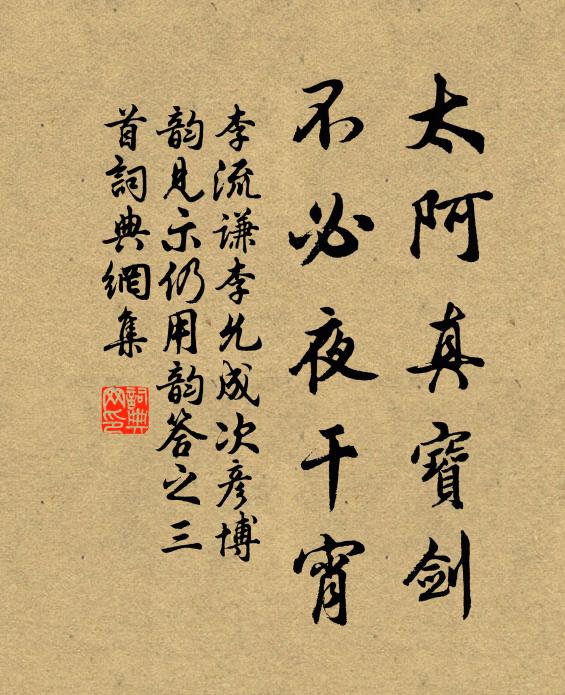 太阿真寶劍
不必夜干宵
李流谦李允成次彦博
韵見示仍用韵答之三
首詞典網集
詞典
网印